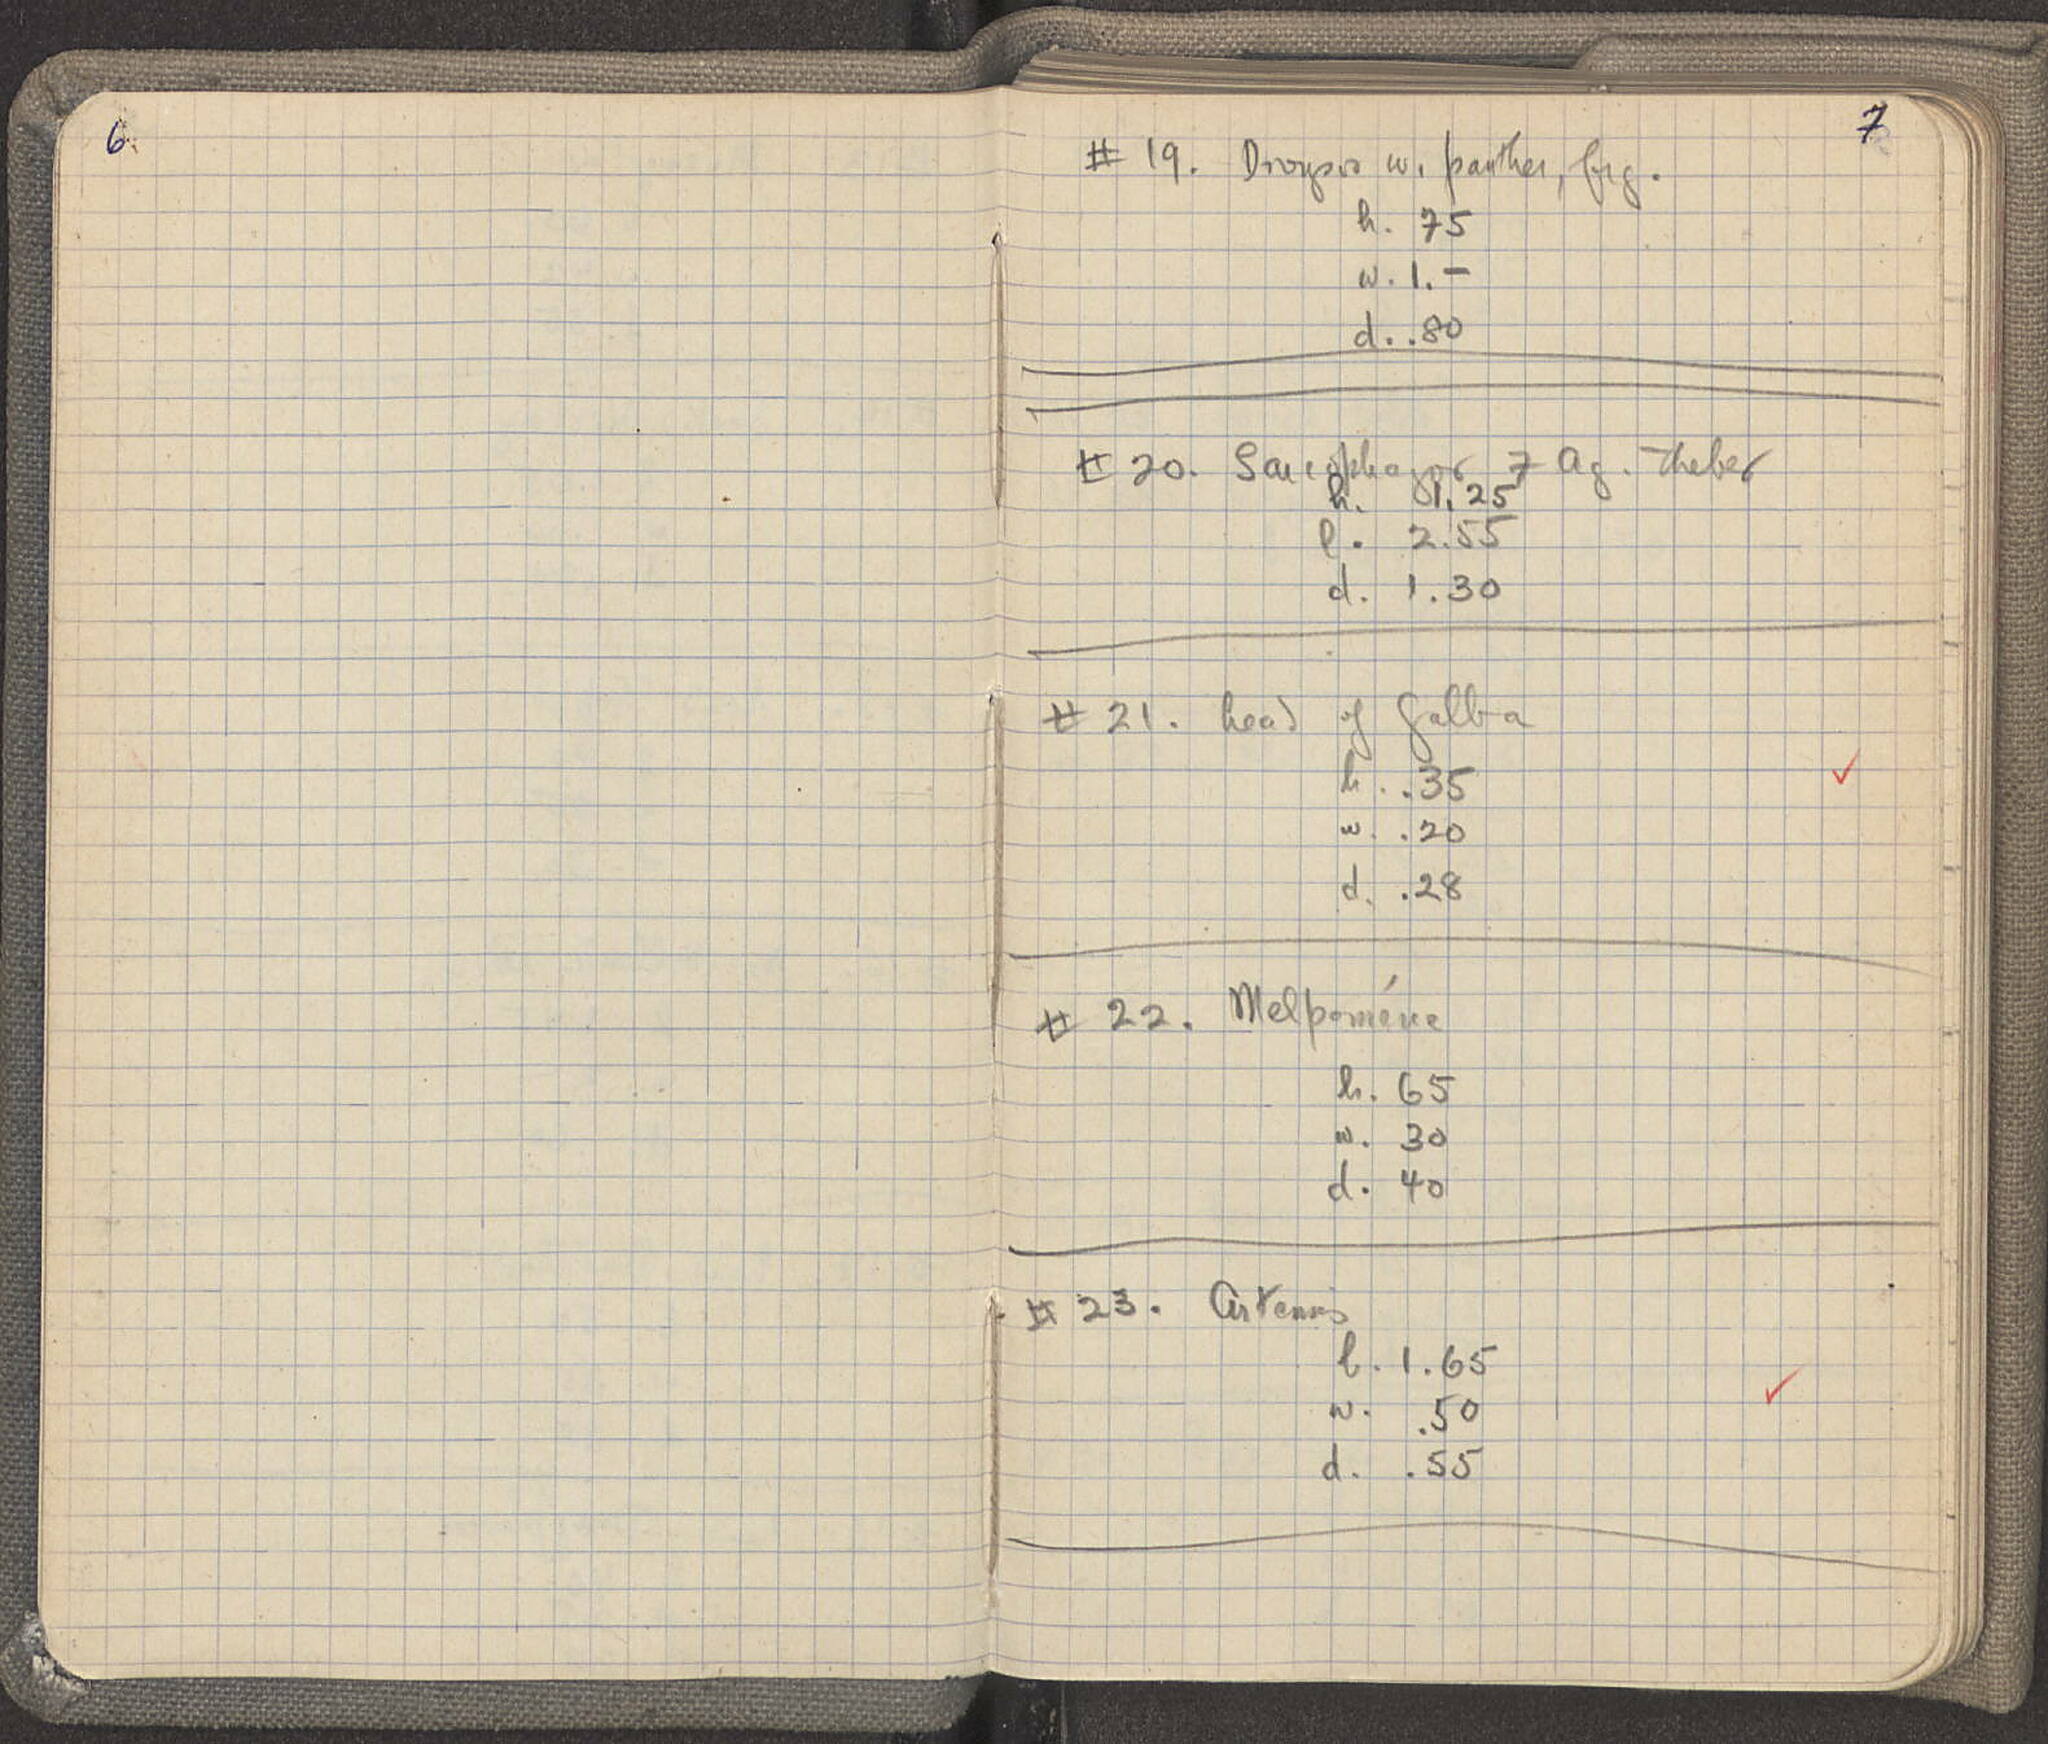 6
7
# 19. Dionysos w. panther, frg.
h. 75
w. 1.-
d. .80
# 20. Sarcophagos 7 Ag. Thebes
h. 1.25
l. 2.55
d. 1.30
# 21. head of Galba
h. .35
w. .20
d. .28
# 22. Melpoméne
h. 65
w. 30
d. 40
# 23. Artemis
h. 1.65
w. .50
d. .55